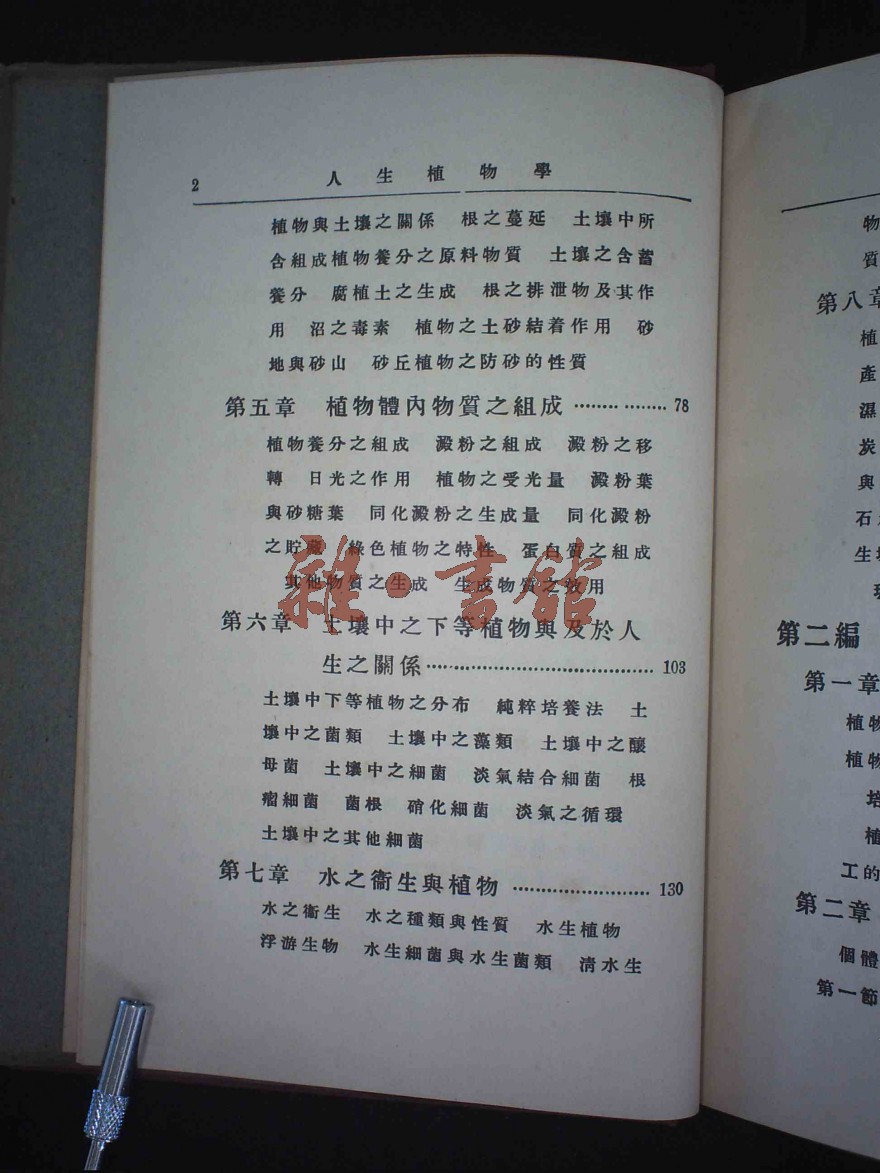 2 人生植物學
植物與土壤之關係 根之蔓延 土壤中所
含組成植物養分之原料物質 土壤之含蓄
養分 腐植土之生成 根之排泄物及其作
用 沼之毒素 植物之土砂結着作用 砂
地與砂山 砂丘植物之防砂的性質
第五章 植物體內物質之組成…………… 78
植物養分之組成 澱粉之組成 澱粉之移
轉 日光之作用 植物之受光量 澱粉葉
與砂糖葉 同化澱粉之生成量 同化澱粉
之貯藏 綠色植物之特性 蛋白質之組成
其他物質之生成 生成物質之效用
第六章 土壤中之下等植物與及於人
生之關係……………………………… 103
土壤中下等植物之分布 純粹培養法 土
壤中之菌類 土壤中之藻類 土壤中之釀
母菌 土壤中之細菌 淡氣結合細菌 根
瘤細菌 菌根 硝化細菌 淡氣之循環
土壤中之其他細菌
第七章 水之衞生與植物 ………………… 130
水之衞生 水之種類與性質 水生植物
浮游生物 水生細菌與水生菌類 淸水生
雜·書館
物
質
第八章
植
產
濕
炭
與
石
生
第二編
第一章
植物
植物
培
植
工的
第二章
個體
第一節